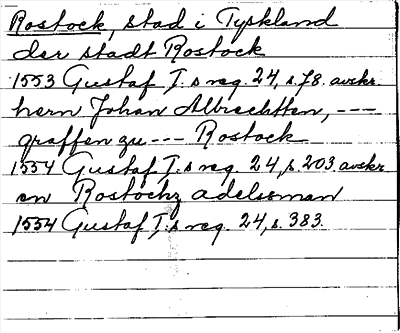 Rostock, stad i Tyskland
der stadt Rostock
1553 Gustaf I:s reg. 24, s. 78. avskr.
hern Johan Albrechtten, ---
graffen zu --- Rostock
1554 Gustaf I:s reg. 24, s. 203 avskr
en Rostochz adelssman
1554 Gustaf I:s reg. 24, s. 383.